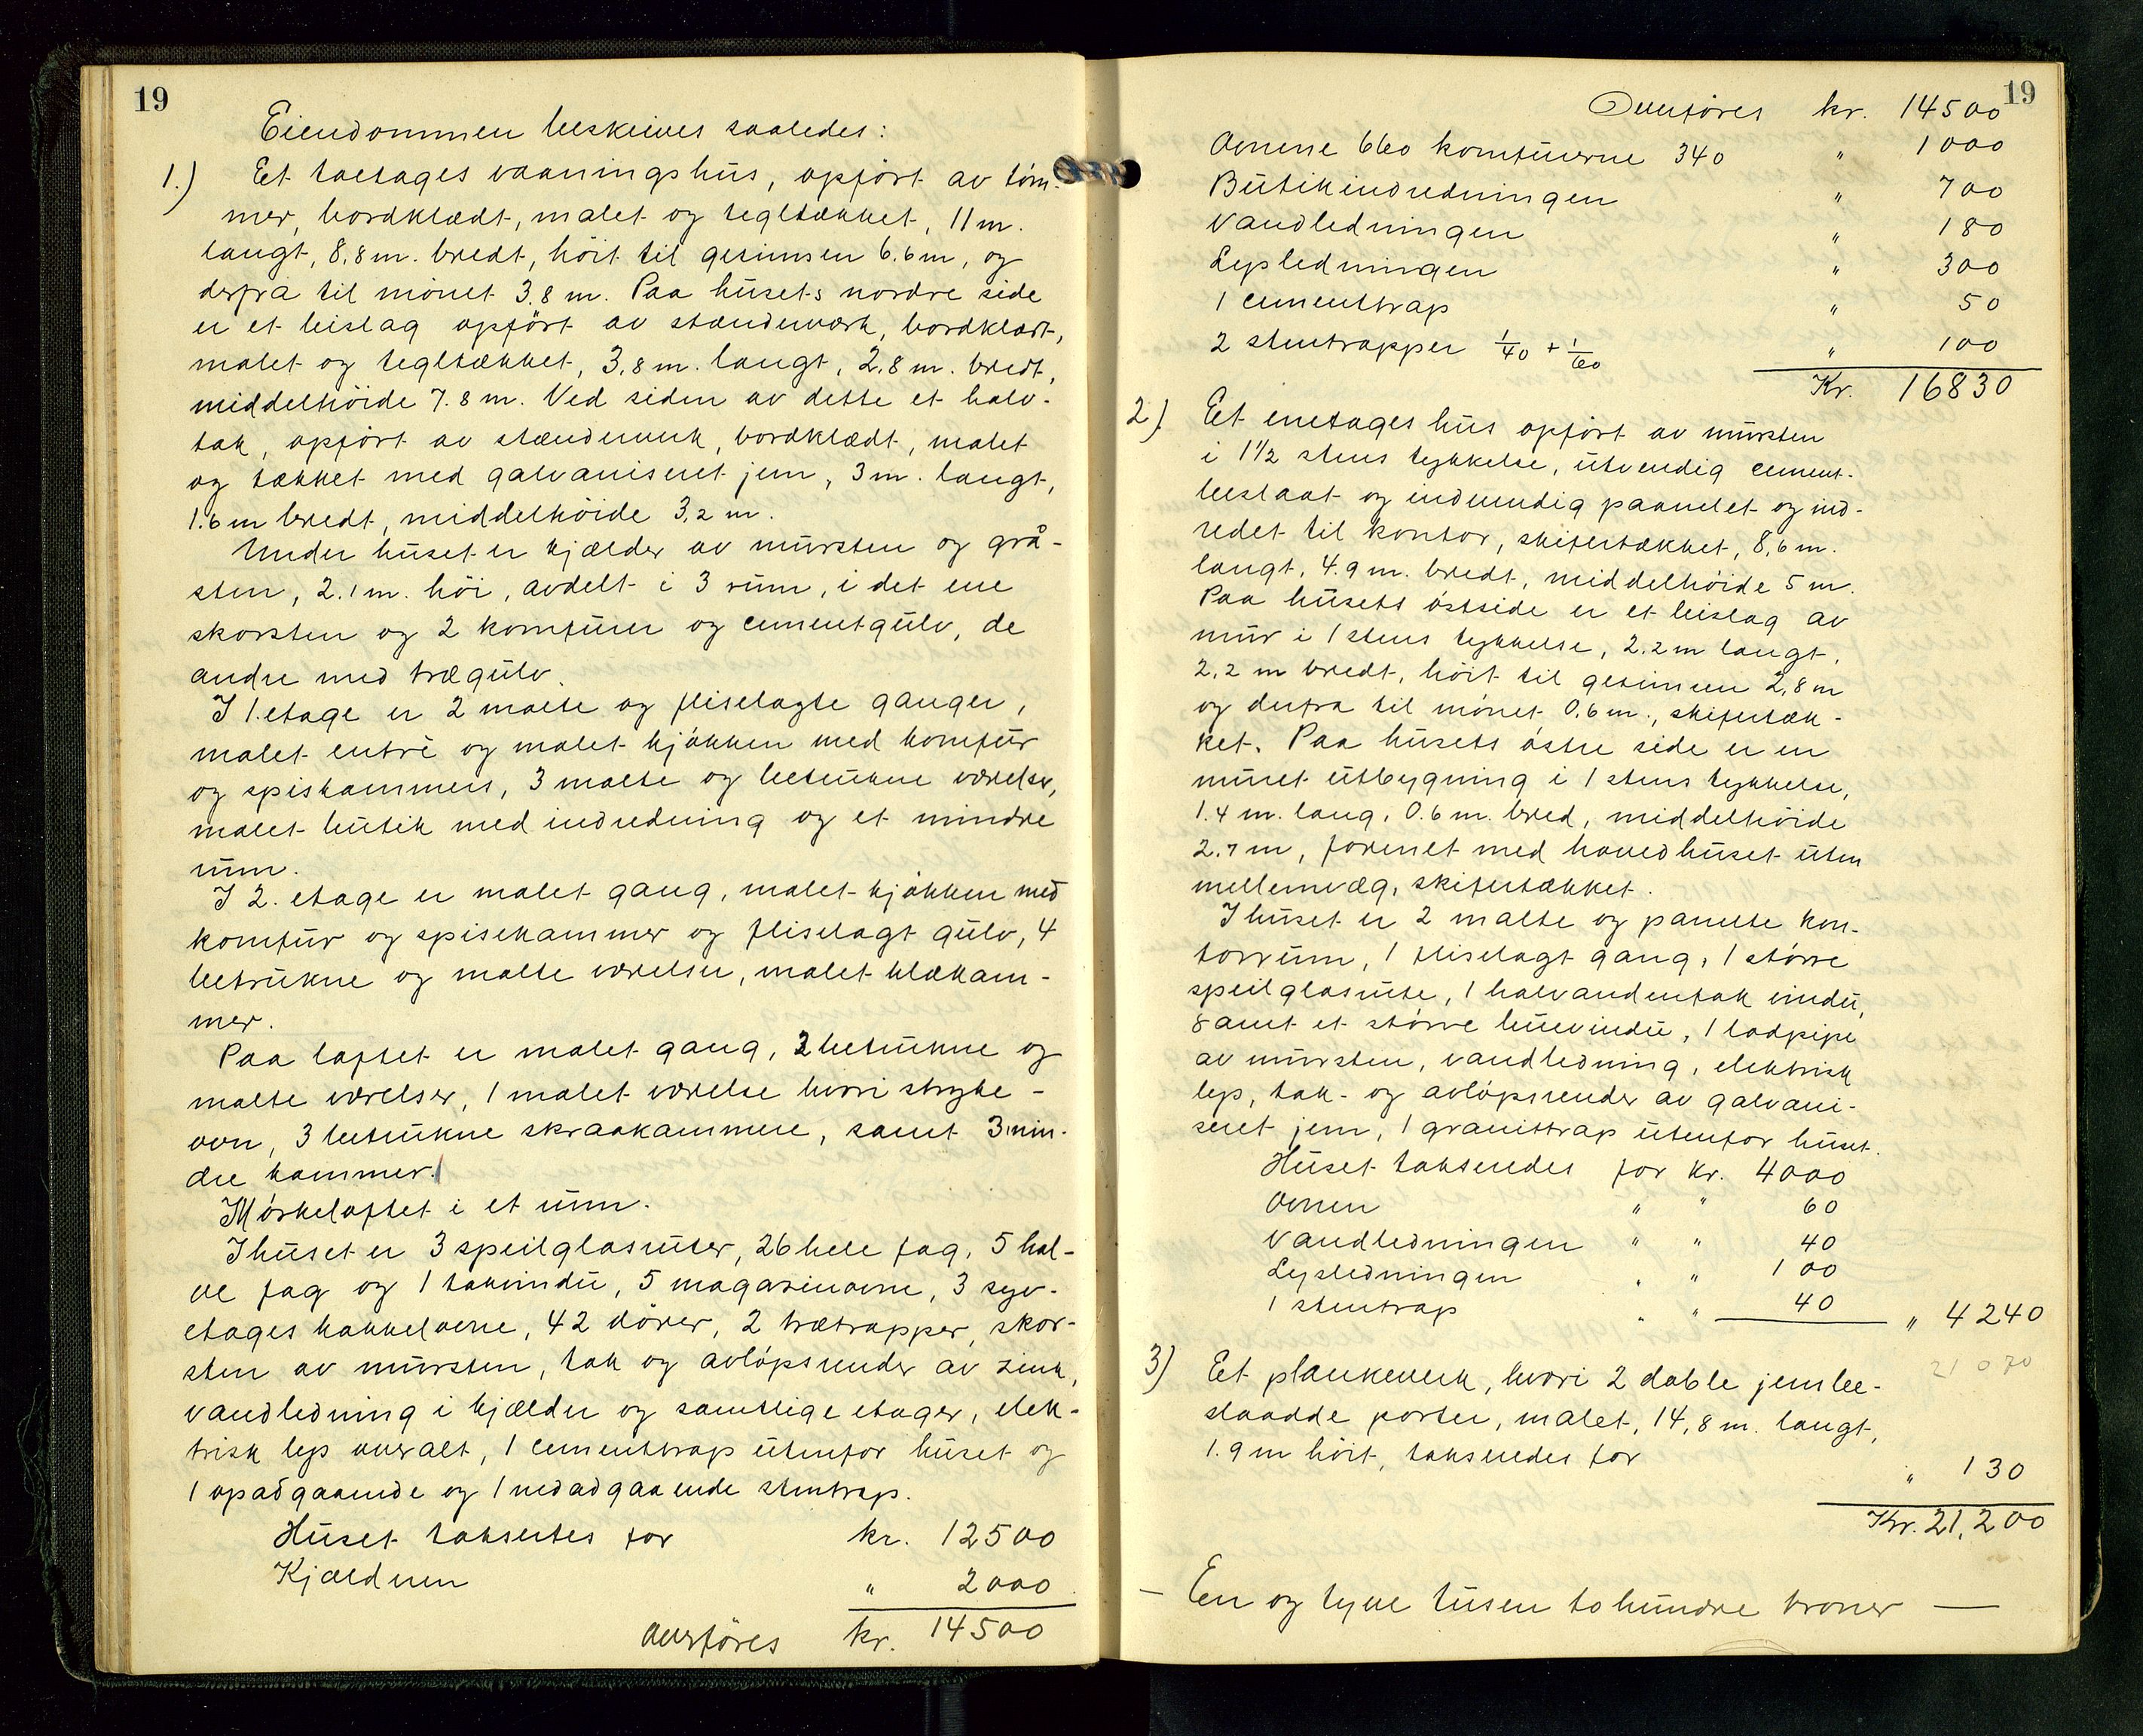 19
Eiendommen beskrives saaledes:
1.) Et toetages vaaningshus, opført av tøm-
mer, bordklædt, malet og tegltækket, 11 m.
langt, 8,8 m. bredt, höit til gesimsen 6.6 m, og
derfra til mönet 3,8 m. Paa husets nordre side
er et bislag opført av stænderværk, bordklædt,
malet og tegltækket, 3,8 m. langt, 2,8 m. bredt,
middelhöide 7.8 m. Ved siden av dette et halv-
tak, opført av stænderverk, bordklædt, malet
og tækket med galvaniseret jern, 3 m. langt,
1.6 m bredt, middelhöide 3,2 m.
Under huset er kjælder av mursten og grå-
sten, 2.1 m. höi, avdelt i 3 rum, i det ene
skorsten og 2 komfurer og cementgulv, de
andre med trægulv.
I 1. etage er 2 malte og fliselagte ganger,
malet entrè og malet kjökken med komfur
og spiskammers, 3 malte og betrukne værelser,
malet butik med indredning og et mindre
rum.
I 2. etage er malet gang, malet kjökken med
komfur og spisekammer og fliselagt gulv, 4
betrukne og malte værelser, malet klækam-
mer.
Paa loftet er malet gang, 2 betrukne og
malte værelser, 1 malet værelse hvori stryke-
ovn, 3 betrukne skraakammere, samt 3 min-
dre kammer.
Mörkeloftet i et rum.
I huset er 3 speilglasruter, 26 hele fag, 5 hal-
ve fag og 1 takvindu, 5 magasinovne, 3 syv-
etages kakkelovne, 42 dörer, 2 trætrapper, skor-
sten av mursten, tak og avlöpsrender av zink,
vandledning i kjælder og samtlige etager, elek-
trisk lys overalt, 1 cementtrap utenfor huset og
1 opadgaaende og 1 nedadgaaende stentrap.
Huset taksertes for kr. 12500
Kjælderen " 2000
Overföres kr. 14500
19
Overföres kr. 14500
Ovnene 660 komfurerne 340 " 1000
Butikindredningen " 700
Vandledningen " 180
Lysledningen " 300
1 cementtrap " 50
2 stentrapper 1/40 + 1/60 " 100
Kr. 16830
2.) Et enetages hus opført av mursten
i 1 1/2 stens tykkelse, utvendig cement-
beslaat og indvendig paanelet og ind-
redet til kontor, skifertækket, 8,6 m.
langt, 4.9 m. bredt, middelhöide 5 m.
Paa husets östside er et bislag av
mur i 1 stens tykkelse, 2.2 m langt,
2,2 m bredt, höit til gesimsen 2,8 m
og derfra til mönet 0.6 m., skifertæk-
ket. Paa husets östre side er en
muret utbygning i 1 stens tykkelse,
1.4 m. lang, 0.6 m. bred, middelhöide
2.7 m, forenet med hovedhuset uten
mellemvæg, skifertækket.
I huset er 2 malte og panelte kon-
torrum, 1 fliselagt gang, 1 större
speilglasrute, 1 halvandenfak vindu,
samt et större buevindu, 1 lodpipe
av mursten, vandledning, elektrisk
lys, tak- og avlöpsrender av galvani-
seret jern, 1 granittrap utenfor huset.
Huset takseredes for kr. 4000
Ovnen " " 60
Vandledningen " " 40
Lysledningen " " 100
1 stentrap " " 40 " 4240
21070
3) Et plankeverk, hvori 2 doble jernbe-
slaadde porter, malet, 14,8 m. langt,
1.9 m höit, takseredes for
" 130
Kr. 21,200
— En og tyve tusen to hundre kroner —